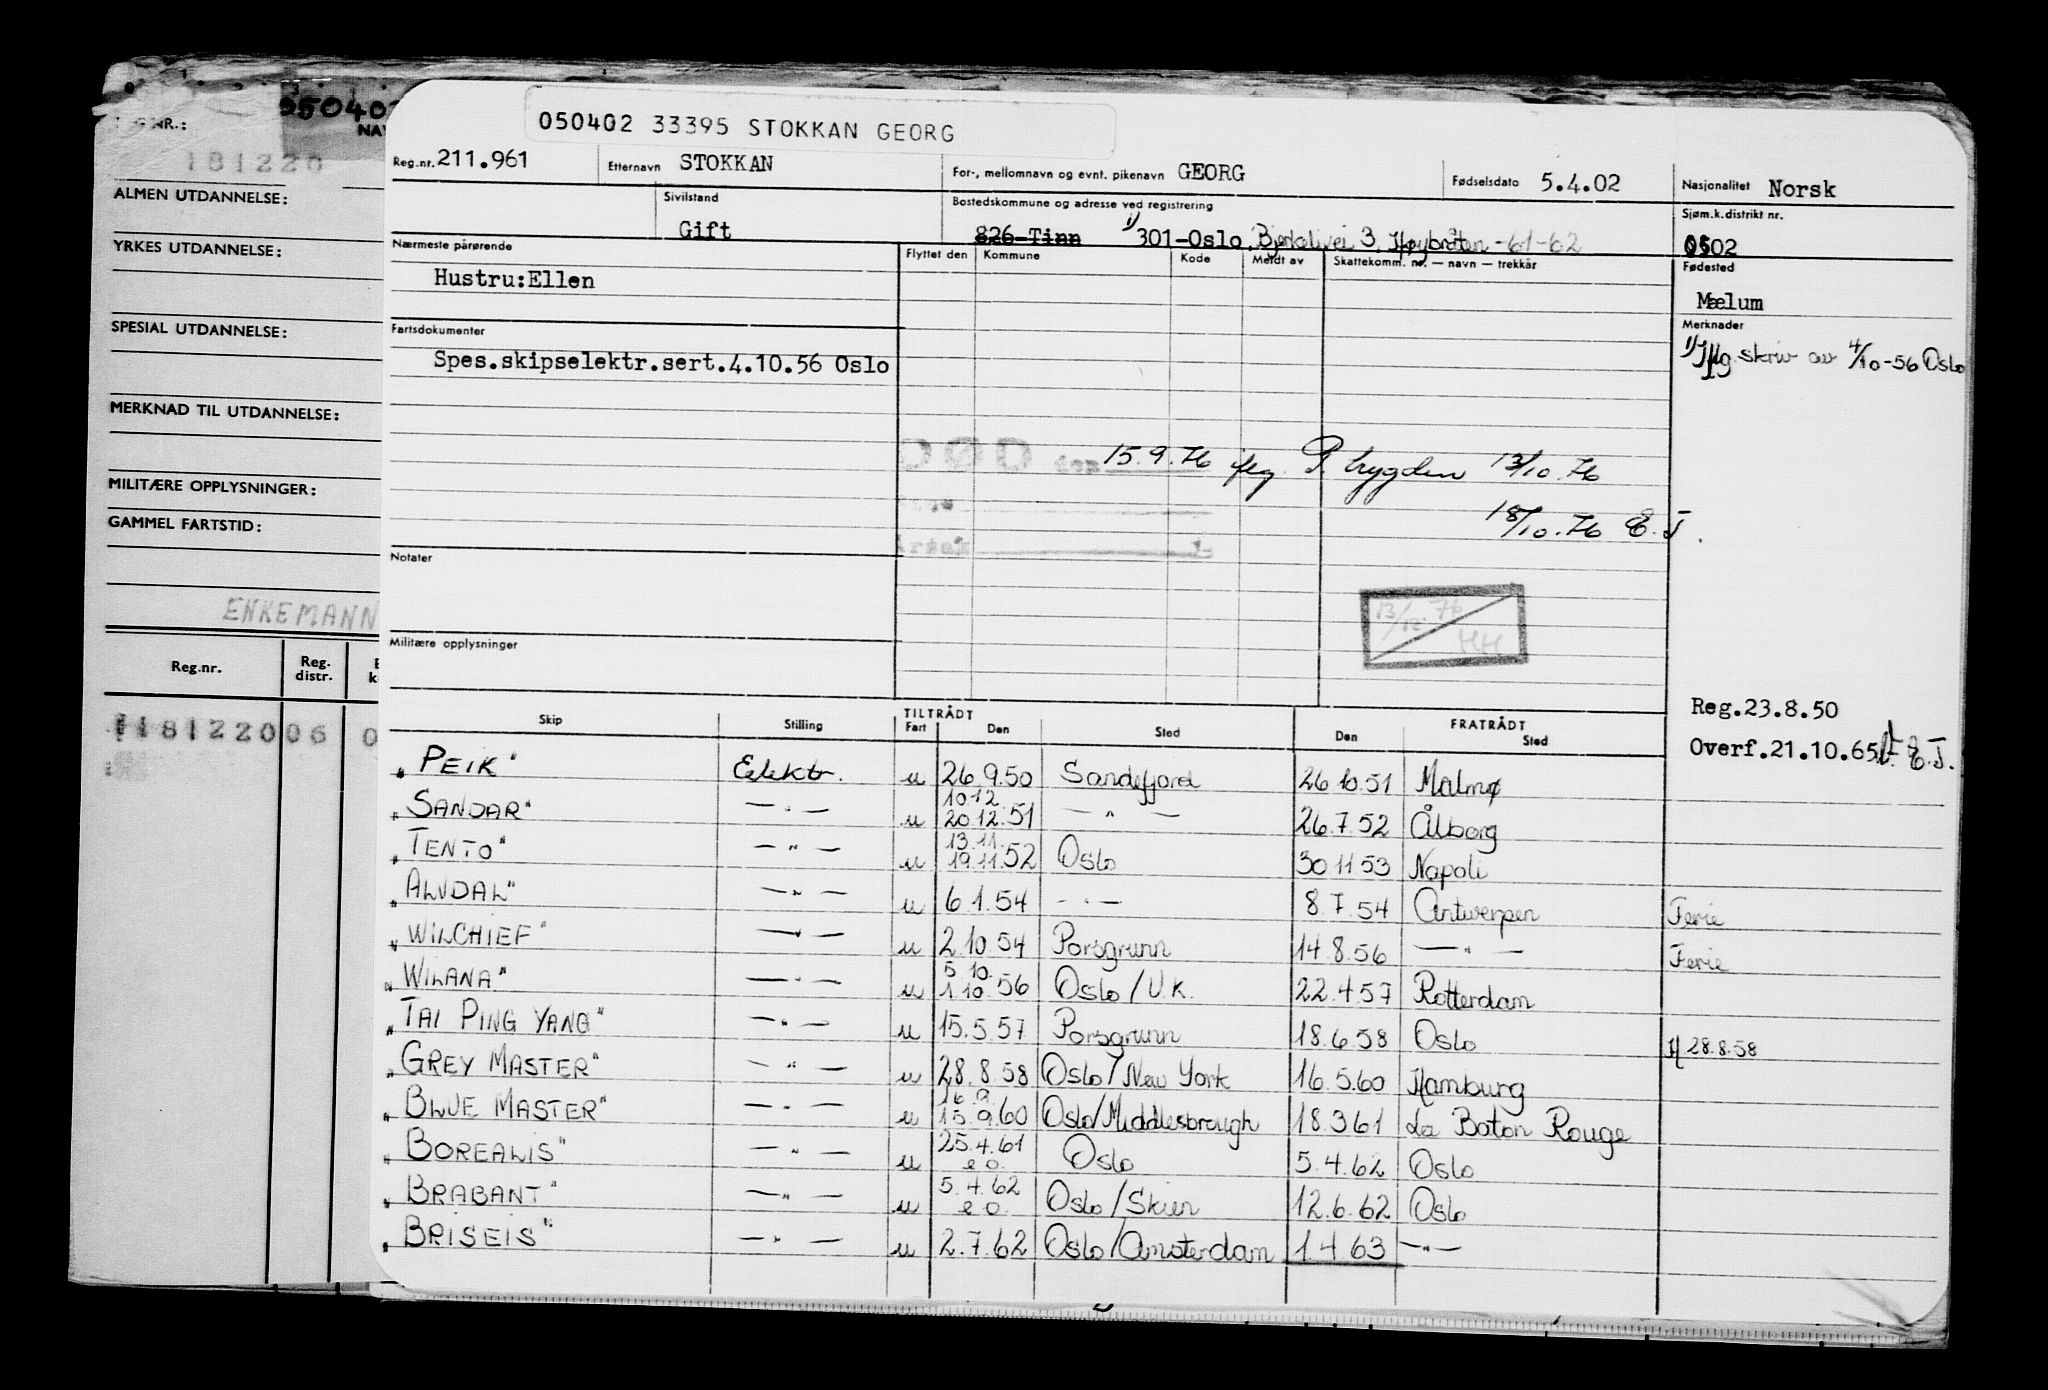 050402
REG NR.:
NAV
181220
ALMEN UTDANNELSE:
YRKES UTDANNELSE:
SPESIAL UTDANNELSE:
MERKNAD TIL UTDANNELSE:
MILITÆRE OPPLYSNINGER:
GAMMEL FARTSTID:
ENKEMANN
Reg.nr. Reg. distr.
18122006 0
050402 33395 STOKKAN GEORG
Reg.nr. 211.961 Etternavn STOKKAN For-, mellomnavn og evnt. pikenavn GEORG Fødselsdato 5.4.02 Nasjonalitet Norsk
Sivilstand Bostedskommune og adresse ved registrering Sjøm.k.distrikt nr.
Gift 826-Tinn 1) 301-Oslo, Bjerkelivei 3, Høybråten -61-62 0502
Nærmeste pårørende Flyttet den Kommune Kode Meldt av Skattekomm. nr. — navn — trekkår Fødested
Hustru:Ellen Mælum
Fartsdokumenter Merknader
Spes.skipselektr.sert.4.10.56 Oslo 1) Jfg. skriv av 4/10-56 Oslo
15.9.76 P. trygden 13/10.76
18/10.76 E.J.
Notater
13/12.76
HH
Militære opplysninger
Reg.23.8.50
Overf.21.10.65 E.J.
TILTRÅDT FRATRÅDT
Skip Stilling Fart Den Sted Den Sted
"PEIK" Elektr. u 26.9.50 Sandefjord 26.10.51 Malmø
"SANDAR" — " — u 10.12. 20.12.51 — " — 26.7.52 Ålborg
"TENTO" — " — u 13.11. 19.11.52 Oslo 30.11.53 Napoli
"ALVDAL" — " — u 6.1.54 — " — 8.7.54 Antwerpen Ferie
"WILCHIEF" — " — u 2.10.54 Porsgrunn 14.8.56 — " — Ferie
"WILANA" — " — u 5.10. 1.10.56 Oslo/U.K. 22.4.57 Rotterdam
"TAI PING YANG" — " — u 15.5.57 Porsgrunn 18.6.58 Oslo 28.8.58
"GREY MASTER" — " — u 28.8.58 Oslo/New York 16.5.60 Hamburg
"BLUE MASTER" — " — u 16.9. 15.9.60 Oslo/Middlesbrough 18.3.61 La Baton Rouge
"BOREALIS" — " — u 25.4.61 e.o. Oslo 5.4.62 Oslo
"BRABANT" — " — u 5.4.62 e.o. Oslo/Skien 12.6.62 Oslo
"BRISEIS" — " — u 2.7.62 Oslo/Amsterdam 1.4.63 — " —